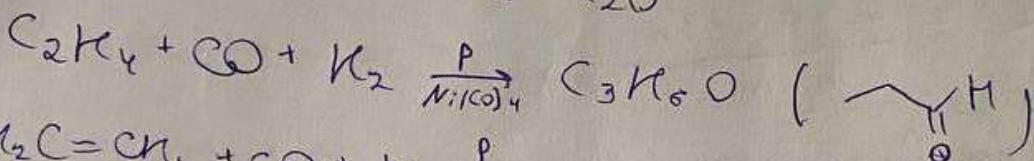 C₂H₄ + CO + H₂ →[P / Ni(CO)₄] C₃H₆O ( H O )
H₂C=CH₂ + CO + P